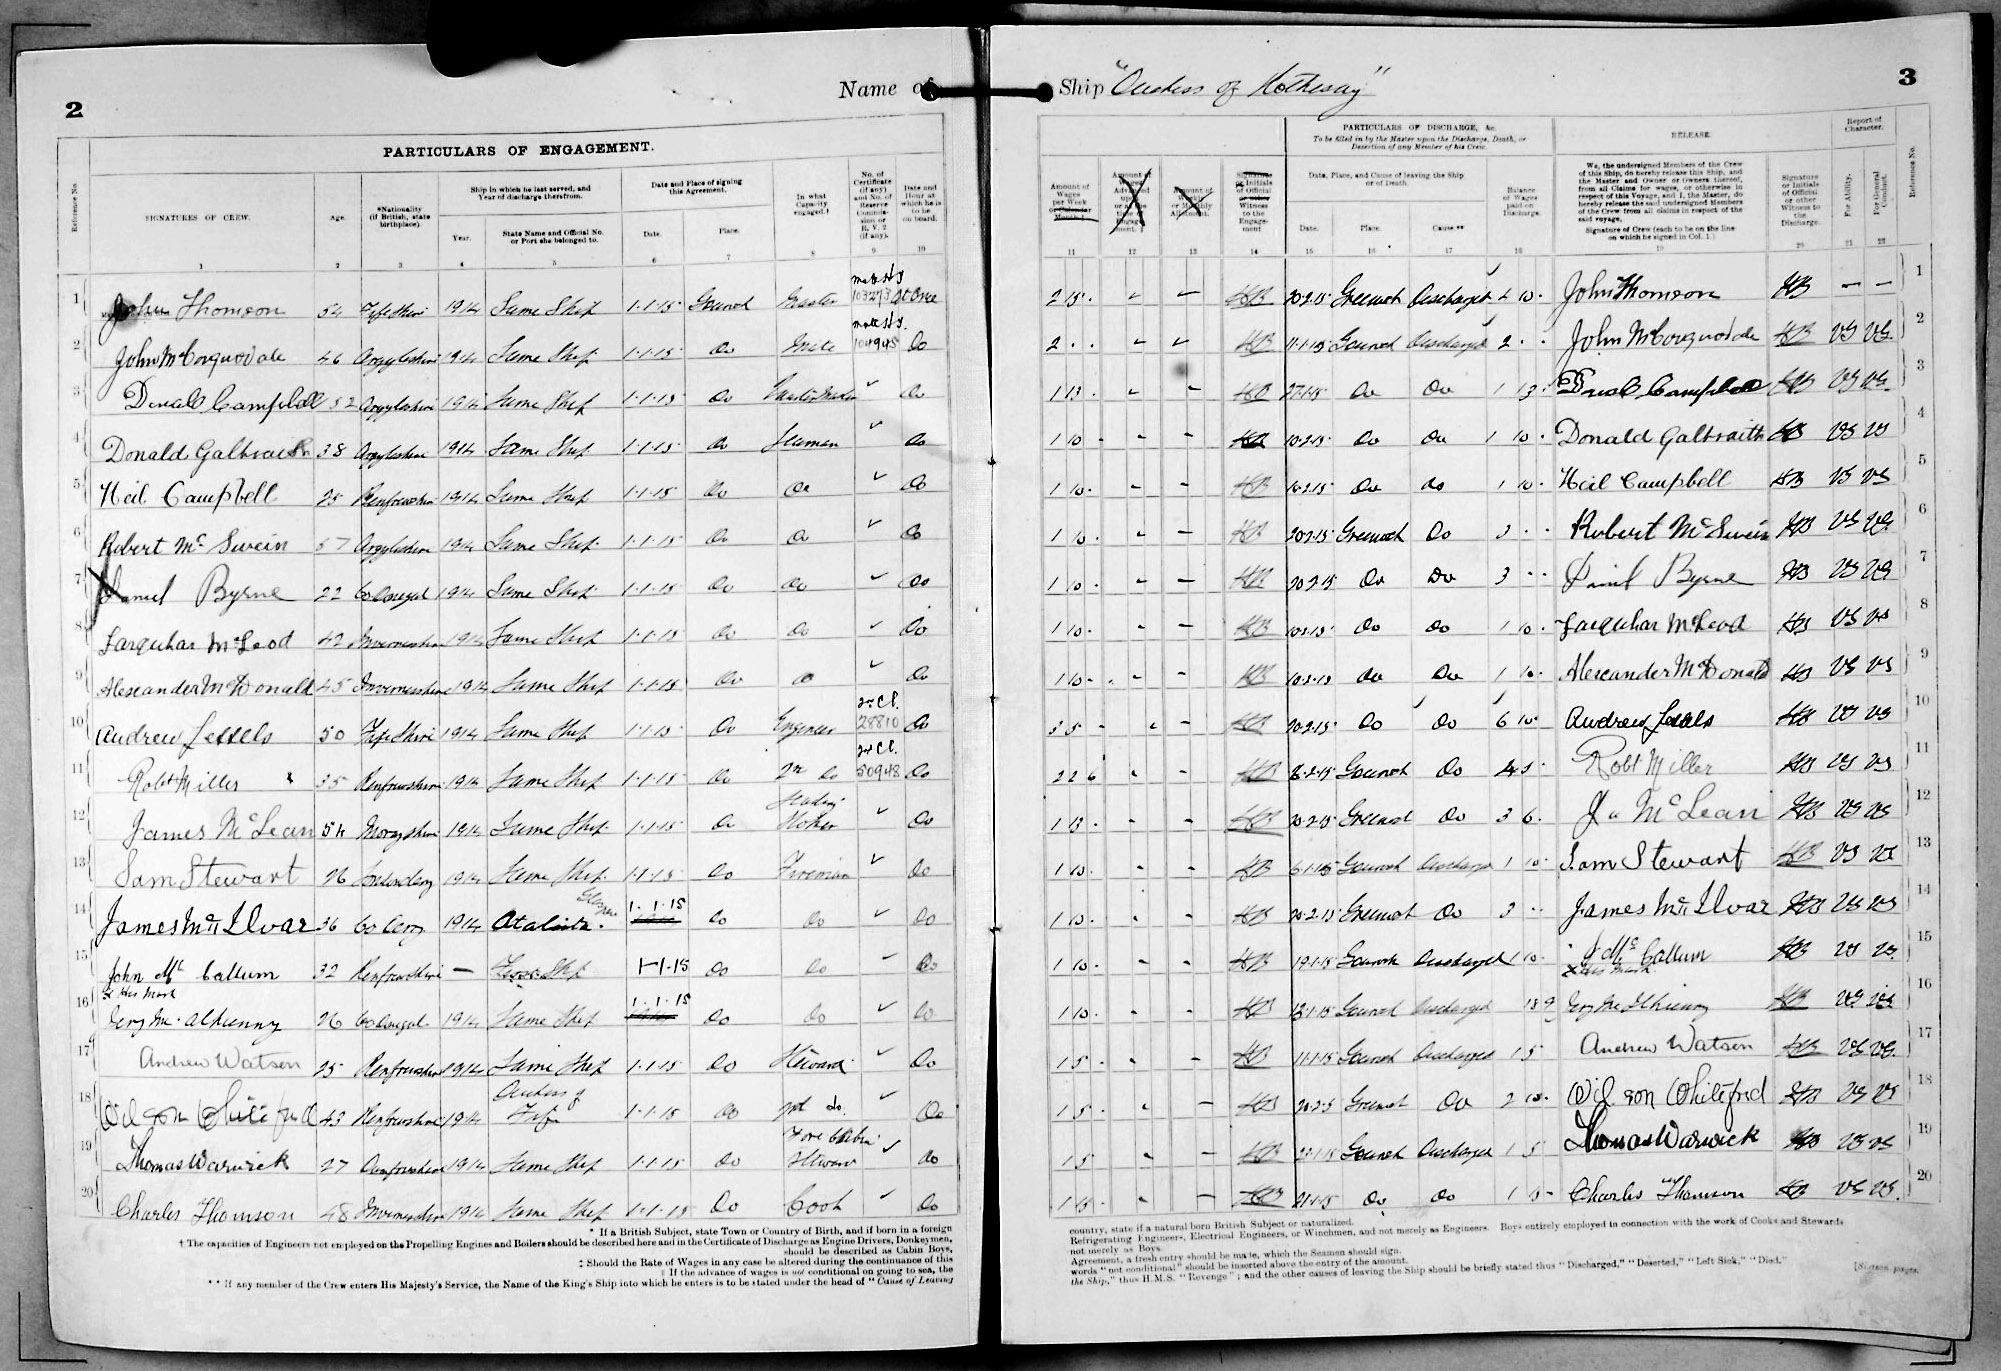 2
Name of
PARTICULARS OF ENGAGEMENT.
Reference No.
SIGNATURES OF CREW.
Age.
*Nationality (if British, state birthplace).
Ship in which he last served, and Year of discharge therefrom.
Year.
State Name and Official No. or Port she belonged to.
Date and Place of signing this Agreement.
Date.
Place.
In what Capacity engaged.†
No. of Certificate (if any) and No. of Reserve Commission or R. V. 2 (if any).
Date and Hour at which he is to be on board.
1 2 3 4 5 6 7 8 9 10
1 John Thomson 54 Fifeshire 1914 Same Ship 1-1-15 Gourock Master 103273 At Once
2 John McCorquodale 46 Argyleshire 1914 Same Ship 1-1-15 Do Mate 104948 Do
3 Donald Campbell 52 Argyleshire 1914 Same Ship 1-1-15 Do ✓ Do
4 Donald Galbraith 38 Argyleshire 1914 Same Ship 1-1-15 Do Seaman ✓ Do
5 Neil Campbell 25 Renfrewshire 1914 Same Ship 1-1-15 Do Do ✓ Do
6 Robert Mc Swein 57 Argyleshire 1914 Same Ship 1-1-15 Do Do ✓ Do
7 Daniel Byrne 22 Co Donegal 1914 Same Ship 1-1-15 Do Do ✓ Do
8 Farquhar McLeod 42 Invernesshire 1914 Same Ship 1-1-15 Do Do ✓ Do
9 Alexander McDonald 45 Invernesshire 1914 Same Ship 1-1-15 Do ✓ Do
2nd Cl.
10 Andrew Lessels 50 Fifeshire 1914 Same Ship 1-1-15 Do Engineer 28810 Do
2nd Cl.
11 Robt Miller 35 Renfrewshire 1914 Same Ship 1-1-15 Do 2nd Do 50948 Do
Leading
12 James McLean 54 Morayshire 1914 Same Ship 1-1-15 Do Stoker ✓ Do
13 Sam Stewart 26 1914 Same Ship 1-1-15 Do Fireman ✓ Do
14 James Mc Ilvar 36 Co Derry 1914 Atalanta Glasgow 1-1-15 Do Do ✓ Do
15 John Mc Callum 32 Renfrewshire — Ship 1-1-15 Do Do ✓ Do
x His Mark
16 26 Co Donegal 1914 Same Ship 1-1-15 Do Do ✓ Do
17 Andrew Watson 25 Renfrewshire 1914 Same Ship 1-1-15 Do Steward ✓ Do
Duchess of
18 Wilson Whiteford 43 Renfrewshire 1914 Fife 1-1-15 Do Do ✓ Do
Fore Cabin
19 Thomas Warwick 27 Renfrewshire 1914 Same Ship 1-1-15 Do Steward ✓ Do
20 Charles Thomson 48 Invernesshire 1914 Same Ship 1-1-15 Do Cook ✓ Do
* If a British Subject, state Town or Country of Birth, and if born in a foreign
† The capacities of Engineers not employed on the Propelling Engines and Boilers should be described here and in the Certificate of Discharge as Engine Drivers, Donkeymen,
should be described as Cabin Boys,
‡ Should the Rate of Wages in any case be altered during the continuance of this
§ If the advance of wages is not conditional on going to sea, the
** If any member of the Crew enters His Majesty's Service, the Name of the King's Ship into which he enters is to be stated under the head of "Cause of Leaving
Ship "Duchess of Rothesay"
3
PARTICULARS OF DISCHARGE, &c.
To be filled in by the Master upon the Discharge, Death, or Desertion of any Member of his Crew.
RELEASE.
Report of Character.
Amount of Wages per Week or Calendar Month.‡
Amount of Wages Advanced upon or at the time of Engagement. §
Amount of Weekly or Monthly Allotment.
Signature or Initials of Official or other Witness to the Engagement
Date, Place, and Cause of leaving the Ship or of Death.
Date.
Place.
Cause **
Balance of Wages paid on Discharge.
We, the undersigned Members of the Crew of this Ship, do hereby release this Ship, and the Master and Owner or Owners thereof, from all Claims for wages, or otherwise in respect of this Voyage, and I, the Master, do hereby release the said undersigned Members of the Crew from all claims in respect of the said voyage.
Signature of Crew (each to be on the line on which he signed in Col. 1.)
Signature or Initials of Official or other Witness to the Discharge.
For Ability.
For General Conduct.
Reference No.
11 12 13 14 15 16 17 18 19 20 21 22
2 15 - HB 20-2-15 Greenock Discharged 4 10 - John Thomson HB — — 1
2 - - HB 11-1-15 Gourock Discharged 2 - - John McCorquodale HB VG VG 2
1 13 - HB 27-1-15 Do Do 1 13 - Donald Campbell HB VG VG 3
1 10 - HB 10-2-15 Do Do 1 10 - Donald Galbraith HB VG VG 4
1 10 - HB Do Do 1 10 - Neil Campbell HB VG VG 5
1 10 - HB 20-2-15 Greenock Do 3 - - Robert Mc Swein HB VG VG 6
1 10 - HB 20-2-15 Do Do 3 - - Daniel Byrne HB VG VG 7
1 10 - HB Do Do 1 10 - Farquhar McLeod HB VG VG 8
1 10 - HB Do Do 1 10 - Alexander McDonald HB VG VG 9
3 5 - HB 20-2-15 Do Do 6 10 - Andrew Lessels HB VG VG 10
2 2 6 HB Gourock Do Robt Miller HB VG VG 11
1 13 - HB 20-2-15 Greenock Do 3 6 - Ja McLean HB VG VG 12
1 10 - HB 6-1-15 Gourock Discharged 1 10 - Sam Stewart HB VG VG 13
1 10 - HB 20-2-15 Greenock Do 3 - - James Mc Ilvar HB VG VG 14
1 10 - HB 19-1-15 Gourock Discharged 1 10 - J Mc Callum HB VG VG 15
x His mark
1 10 - HB Gourock Discharged 18 9 HB VG VG 16
1 5 - HB 11-1-15 Gourock Discharged 1 5 Andrew Watson HB VG VG 17
1 5 - HB 20-2-15 Greenock Do 2 10 - Wilson Whiteford HB VG VG 18
1 5 HB Gourock Discharged 1 5 Thomas Warwick HB VG VG 19
1 15 - HB 21-1-15 Do Do 1 15 - Charles Thomson HB VG VG 20
country, state if a natural born British Subject or naturalized.
Refrigerating Engineers, Electrical Engineers, or Winchmen, and not merely as Engineers. Boys entirely employed in connection with the work of Cooks and Stewards
not merely as Boys.
Agreement, a fresh entry should be made, which the Seamen should sign.
words "not conditional" should be inserted above the entry of the amount.
the Ship," thus H.M.S. "Revenge"; and the other causes of leaving the Ship should be briefly stated thus "Discharged," "Deserted," "Left Sick," "Died."
[Sixteen pages.